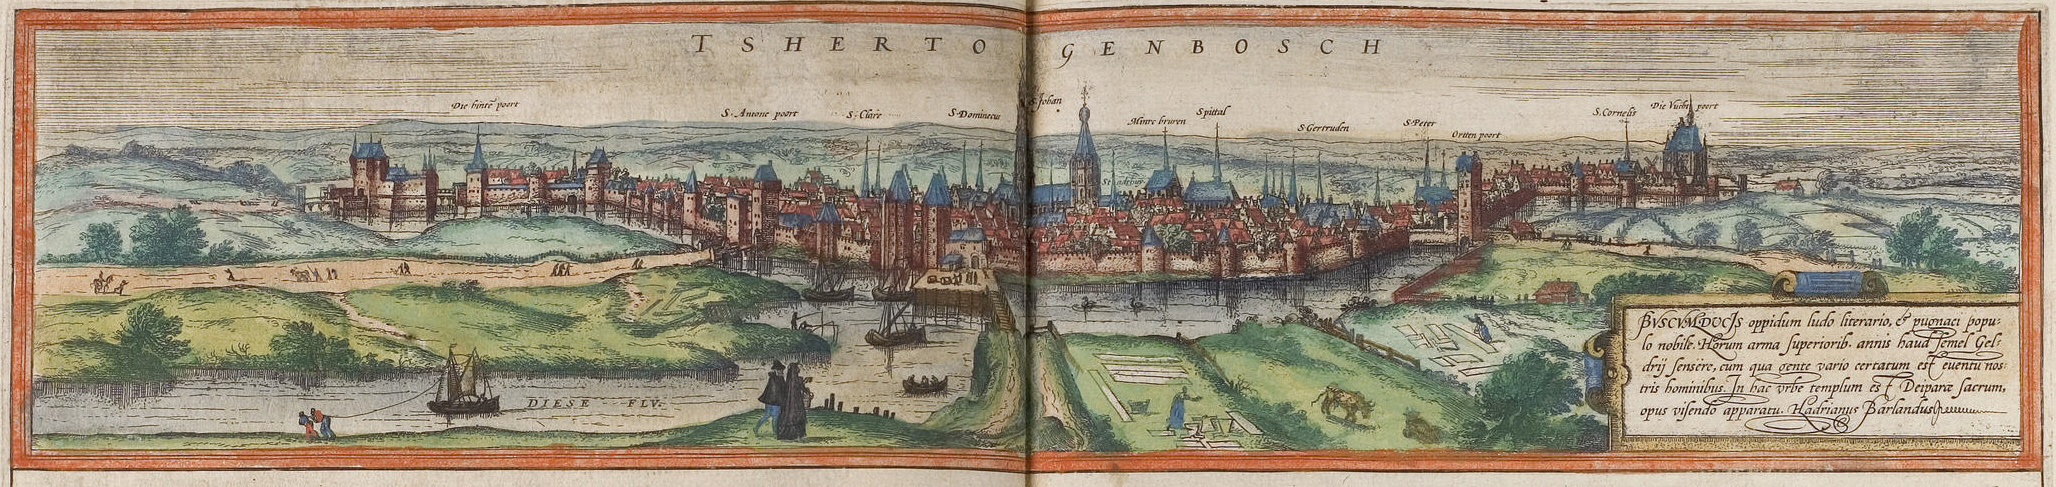 TSHERTOGENBOSCH
Die hinte poort
S. Antone poort
S. Clare
S. Dominecus
S. Johan
Minre bruren
Spittal
S. Gertruden
S. Peter
Ortten poort
S. Cornelis
Die Vuchter poort
DIESE FLV.
BVSCVMDVCIS oppidum ludo literario, & pugnaci popu-
lo nobile. Horum arma superiorib. annis haud semel Gel-
drij sensere, cum qua gente vario certatum est euentu nos-
tris hominibus. In hac vrbe templum est Deiparæ sacrum,
opus visendo apparatu. Hadrianus Barlandus